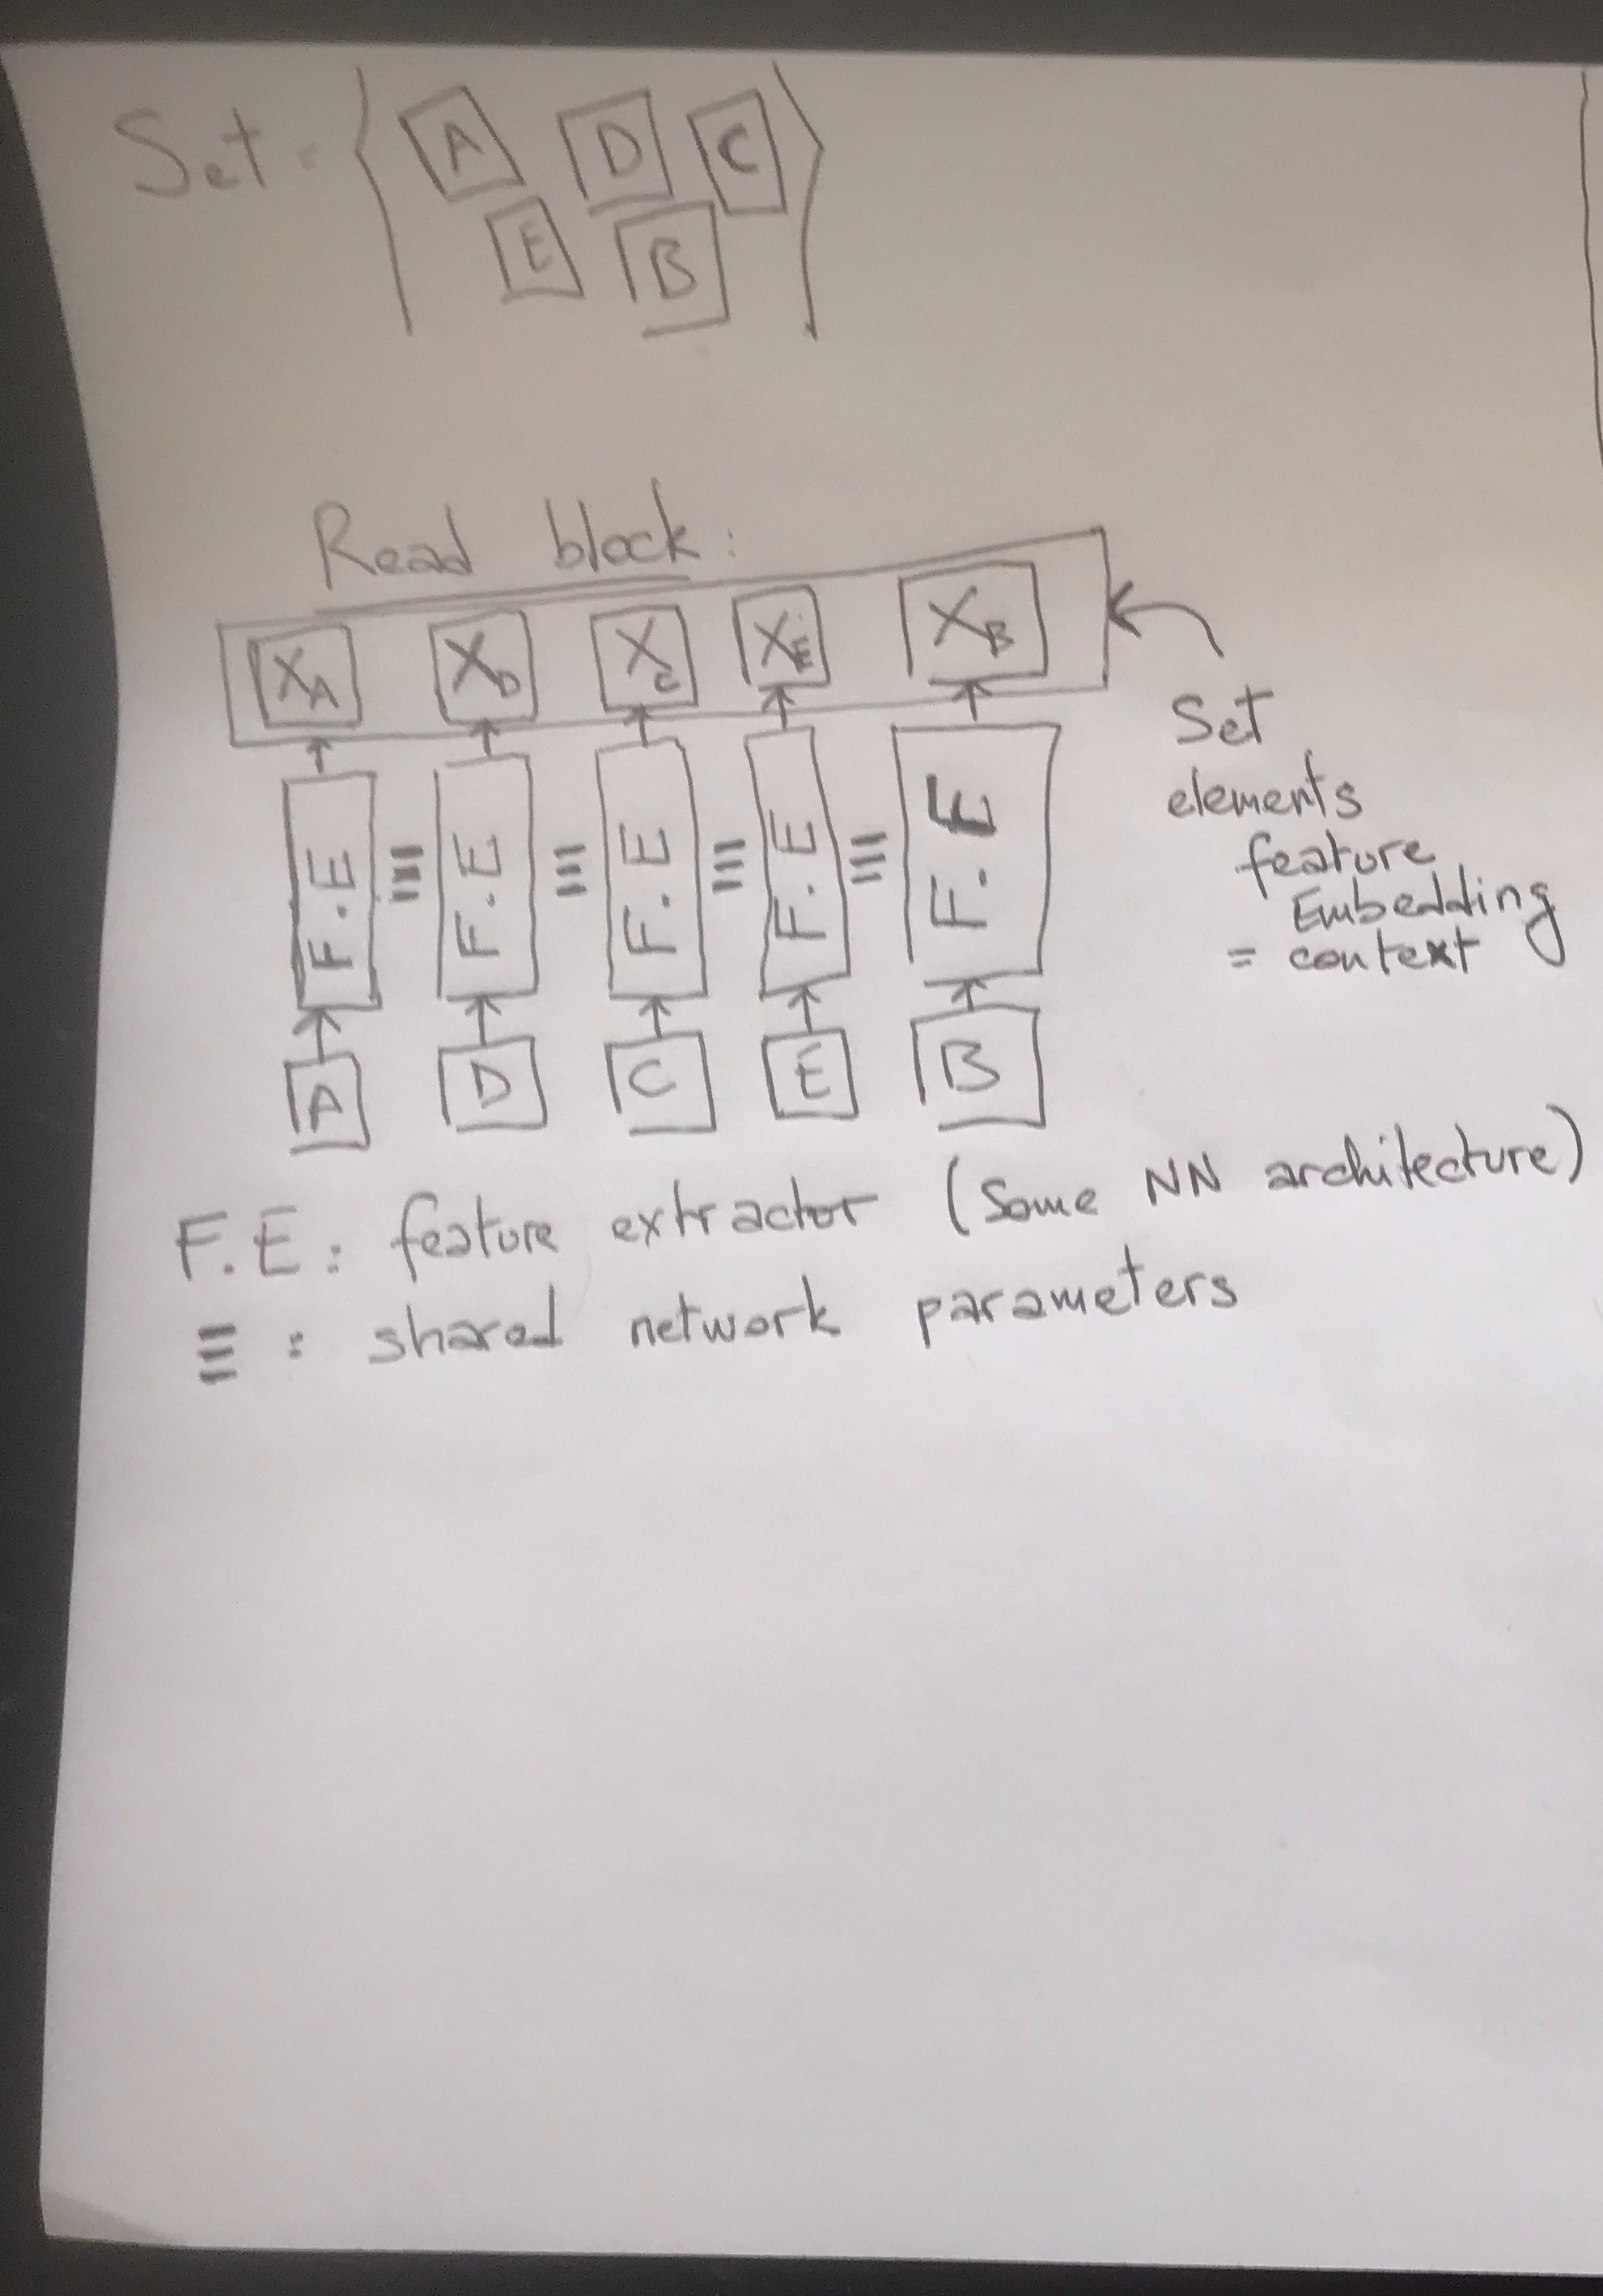 Set = { A D C
E B }
Read block:
X_A X_D X_C X_E X_B
F.E ≡ F.E ≡ F.E ≡ F.E ≡ F.E
A D C E B
Set
elements
feature
Embedding
= context
F.E: feature extractor (Some NN architecture)
≡ : shared network parameters